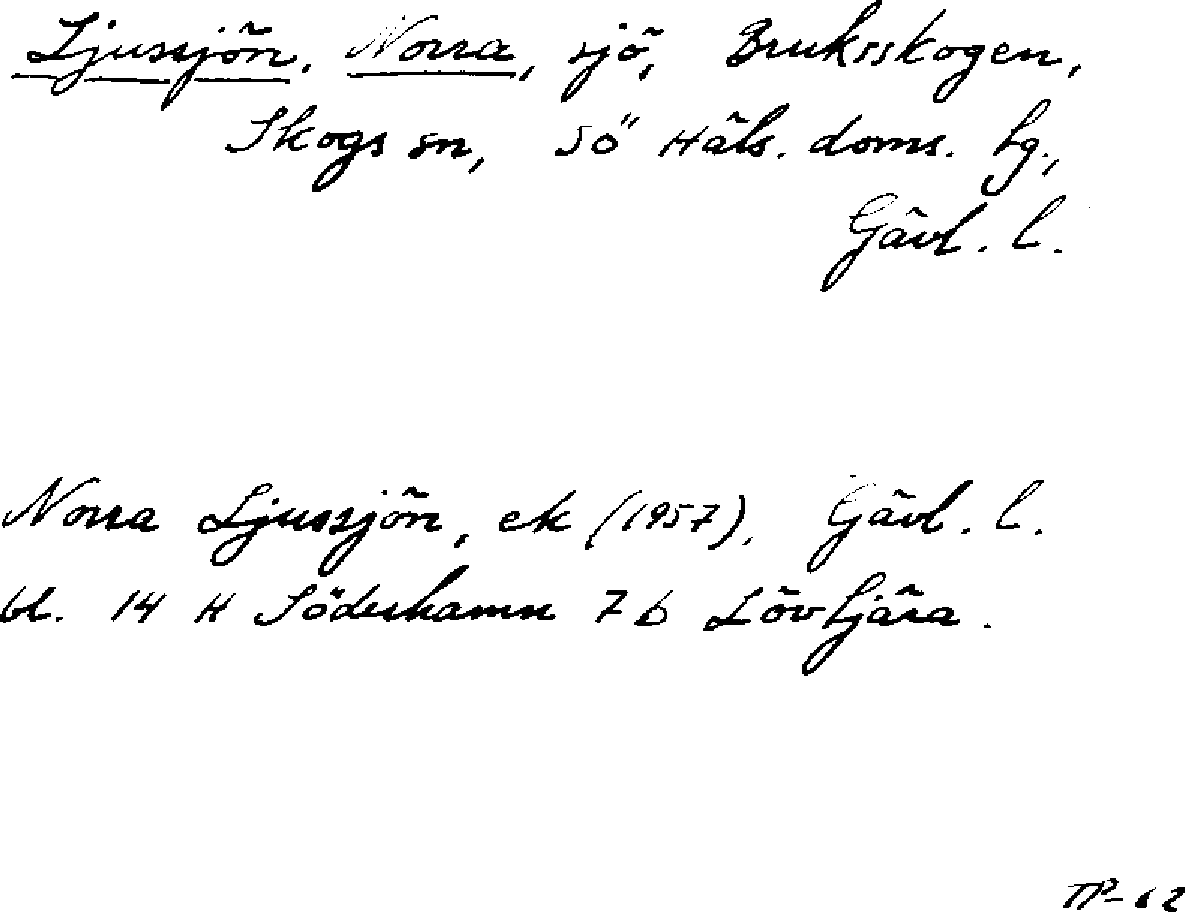 Ljussjön, Norra, sjö, Bruksskogen,
Skogs sn, Sö Häls. doms. hg.,
Gävl. l.
Norra Ljussjön, ek (1957), Gävl. l.
bl. 14 H Söderhamn 7 b Lövtjära.
TP-62